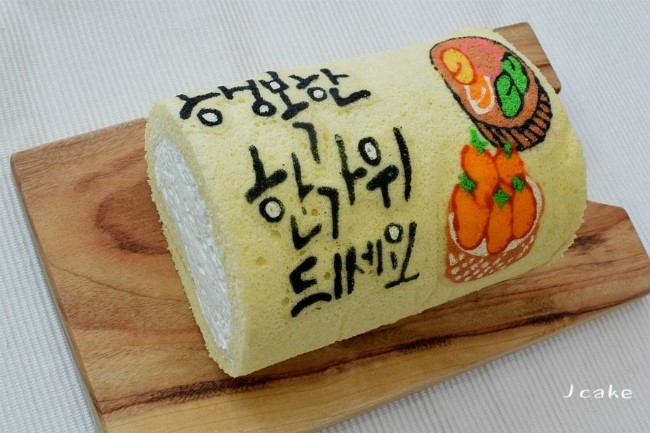 행복한
한가위
되세요
J cake